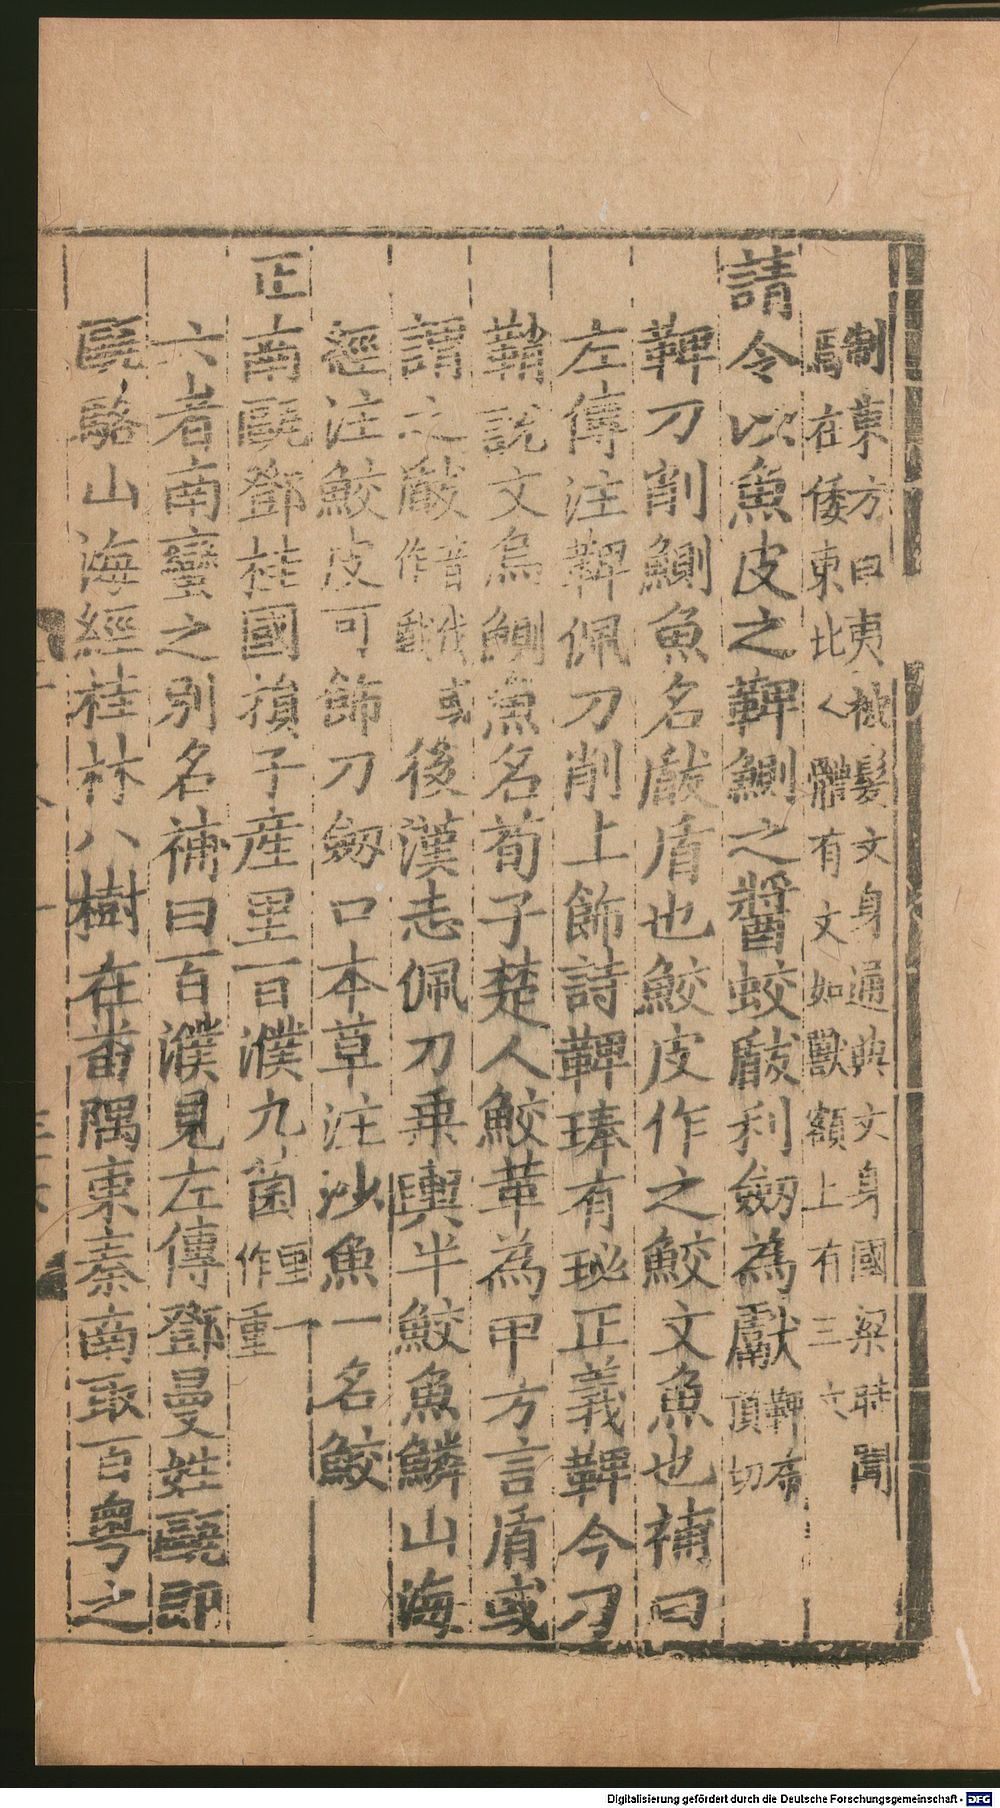 制東方曰夷被髮文身通典文身國梁時聞
焉在倭東北人體有文如獸額上有三文
請令以魚皮之鞞鰂之醬蛟瞂利劒為獻鞞布
頂切
鞞刀削鰂魚名瞂盾也鮫皮作之鮫文魚也補曰
左傳注鞞佩刀削上飾詩鞞琫有珌正義鞞今刀
鞘說文烏鰂魚名荀子楚人鮫革為甲方言盾或
謂之瞂音伐或
作𢧕後漢志佩刀乗輿半鮫魚鱗山海
經注鮫皮可飾刀劒口本草注沙魚一名鮫
正南甌鄧桂國損子産里百濮九菌里一
作重
六者南蠻之別名補曰百濮見左傳鄧曼姓甌即
甌駱山海經桂林八樹在番隅東秦南取百粵之
Digitalisierung gefördert durch die Deutsche Forschungsgemeinschaft - DFG